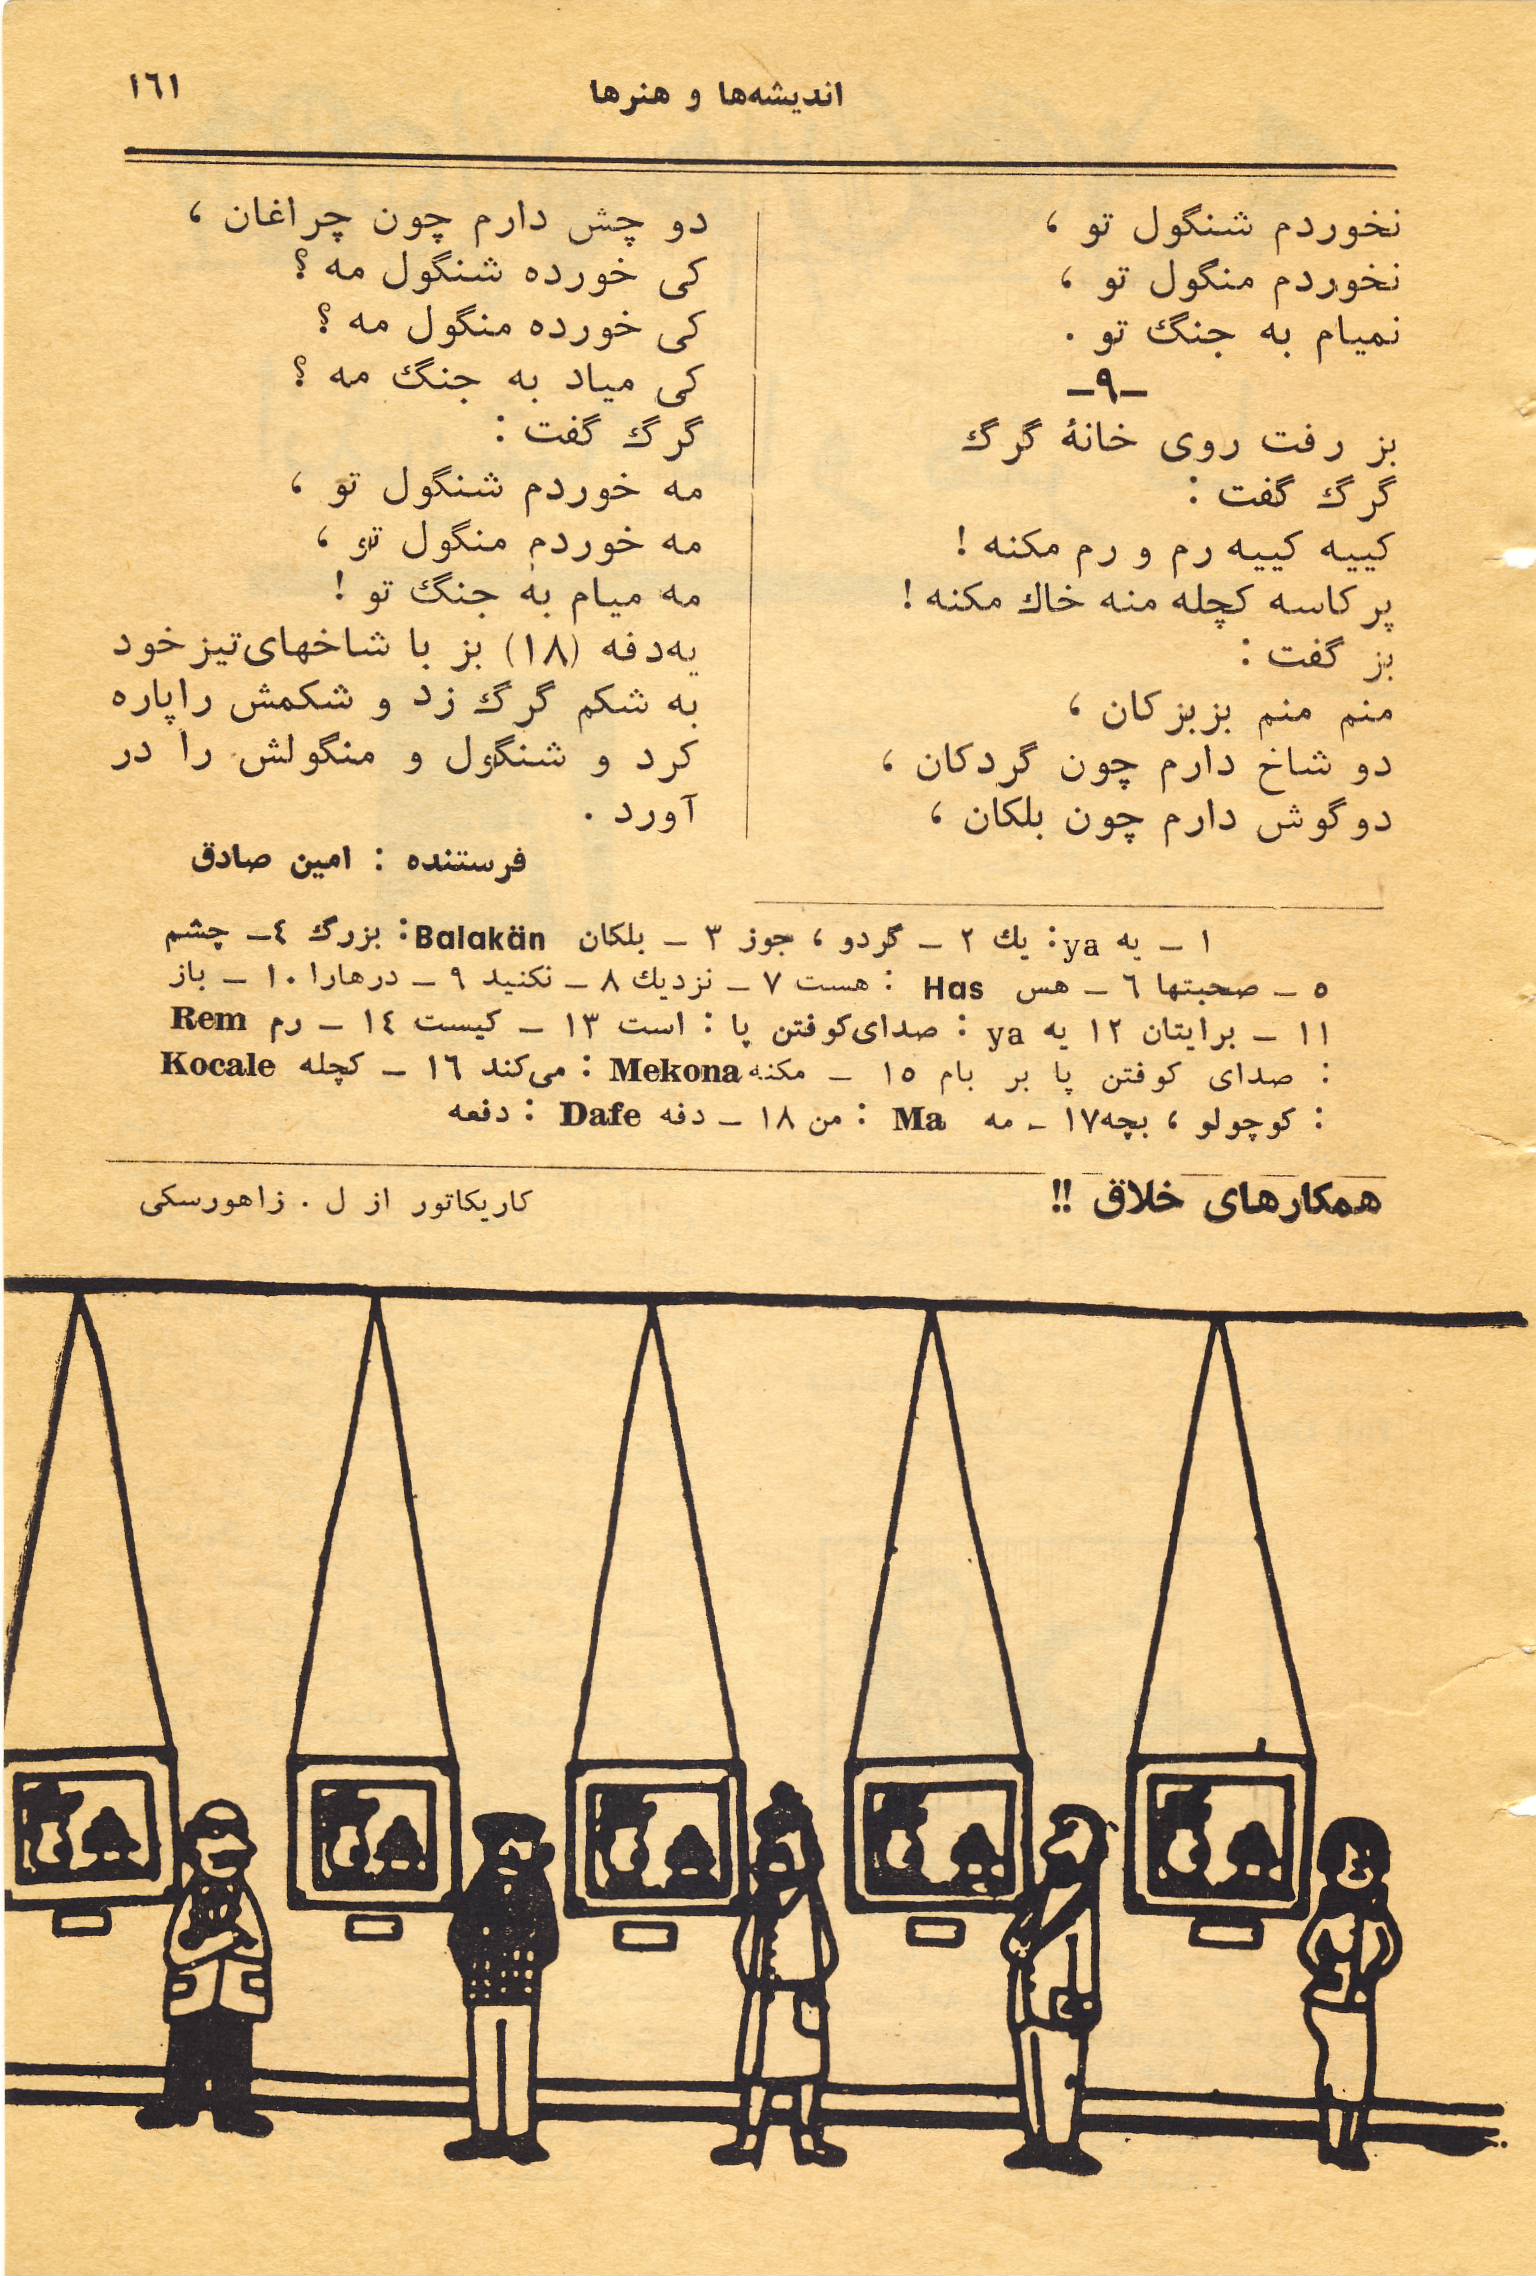 اندیشه‌ها و هنرها
١٦١
نخوردم شنگول تو ،
نخوردم منگول تو ،
نمیام به جنگ تو .
ـ٩ـ
بز رفت روی خانهٔ گرگ
گرگ گفت :
کییه کییه رم و رم مکنه !
پر کاسه کچله منه خاك مکنه !
بز گفت :
منم منم بزبز کان ،
دو شاخ دارم چون گردکان ،
دو گوش دارم چون بلکان ،
دو چش دارم چون چراغان ،
کی خورده شنگول مه ؟
کی خورده منگول مه ؟
کی میاد به جنگ مه ؟
گرگ گفت :
مه خوردم شنگول تو ،
مه خوردم منگول تو ،
مه میام به جنگ تو !
یه‌دفه (١٨) بز با شاخهای‌تیز خود
به شکم گرگ زد و شکمش را پاره
کرد و شنگول و منگولش را در
آورد .
فرستنده : امین صادق
١ ـ یه ya: یك ٢ ـ گردو ، جوز ٣ ـ بلکان Balakän: بزرگ ٤ـ چشم
٥ ـ صحبتها ٦ ـ هس Has : هست ٧ ـ نزدیك ٨ ـ نکنید ٩ ـ درهارا ١٠ ـ باز
١١ ـ برایتان ١٢ یه ya : صدای‌کوفتن پا : است ١٣ ـ کیست ١٤ ـ رم Rem
: صدای کوفتن پا بر بام ١٥ ـ مکنه Mekona : می‌کند ١٦ ـ کچله Kocale
: کوچولو ، بچه ١٧ ـ مه Ma : من ١٨ ـ دفه Dafe : دفعه
همکارهای خلاق !!
کاریکاتور از ل . زاهورسکی